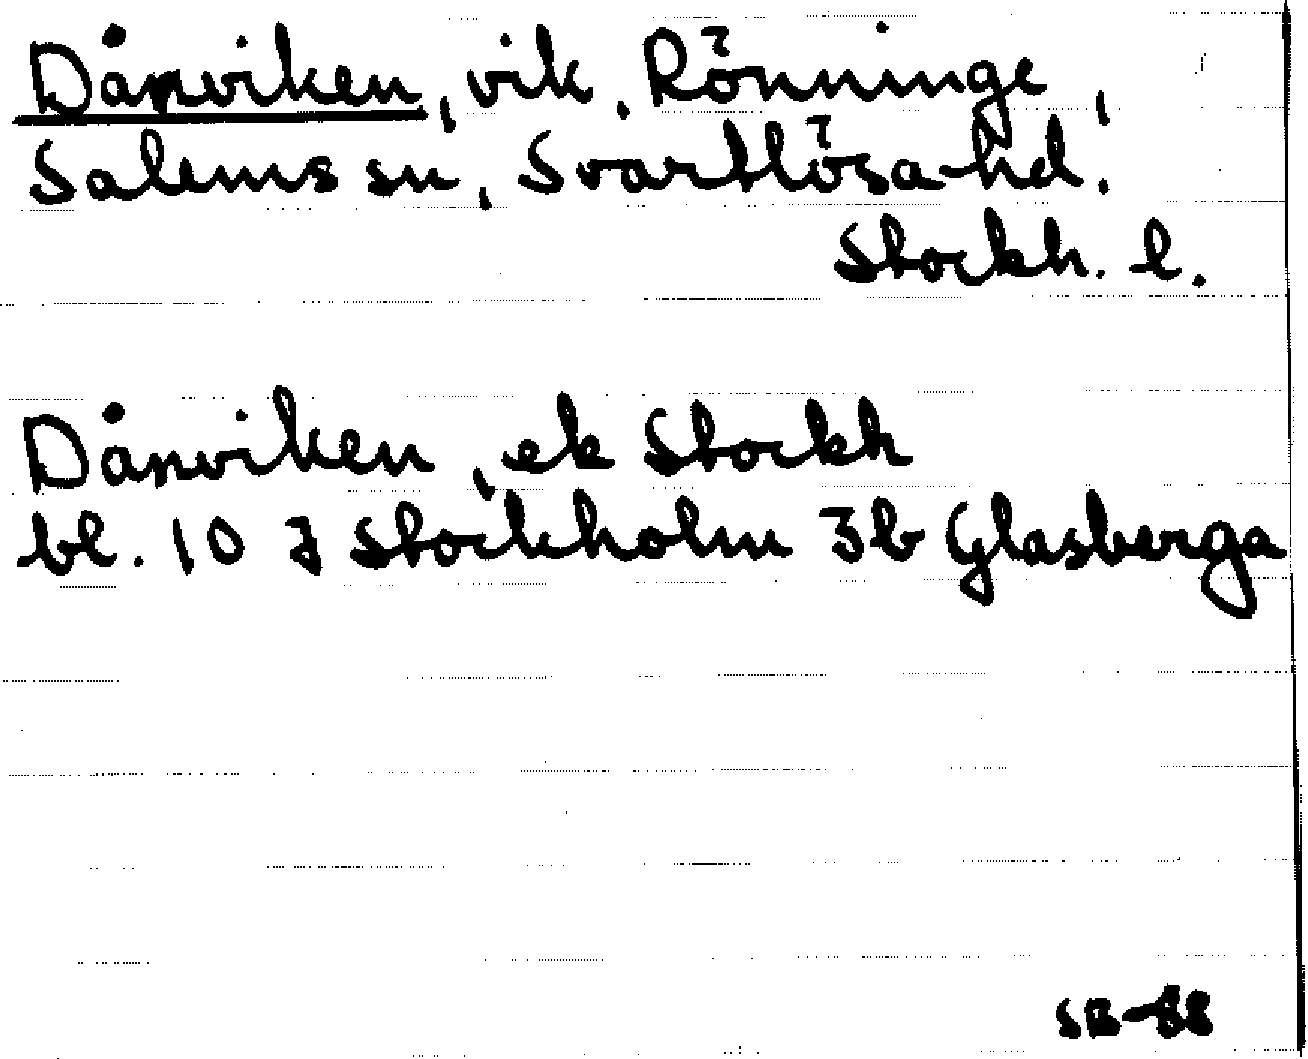 Dånviken, vik, Rönninge,
Salems sn, Svartlösa hd.
Stockh. l.
Dånviken, ek Stockh
bl. 10 I Stockholm 3b Glasberga
SB-88